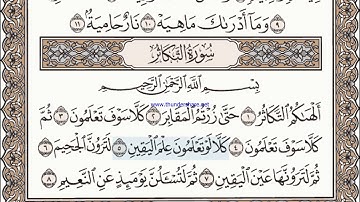 ۹ وَمَآ أَدْرَىٰكَ مَا هِيَهْ ۱۰ نَارٌ حَامِيَةٌۢ ۱۱
سُورَةُ التَّكَاثُرِ
بِسْمِ ٱللَّهِ ٱلرَّحْمَٰنِ ٱلرَّحِيمِ
www.thundershare.net
أَلْهَىٰكُمُ ٱلتَّكَاثُرُ ۱ حَتَّىٰ زُرْتُمُ ٱلْمَقَابِرَ ۲ كَلَّا سَوْفَ تَعْلَمُونَ ۳ ثُمَّ
كَلَّا سَوْفَ تَعْلَمُونَ ٤ كَلَّا لَوْ تَعْلَمُونَ عِلْمَ ٱلْيَقِينِ ٥ لَتَرَوُنَّ ٱلْجَحِيمَ ٦
ثُمَّ لَتَرَوُنَّهَا عَيْنَ ٱلْيَقِينِ ٧ ثُمَّ لَتُسْـَٔلُنَّ يَوْمَئِذٍ عَنِ ٱلنَّعِيمِ ٨